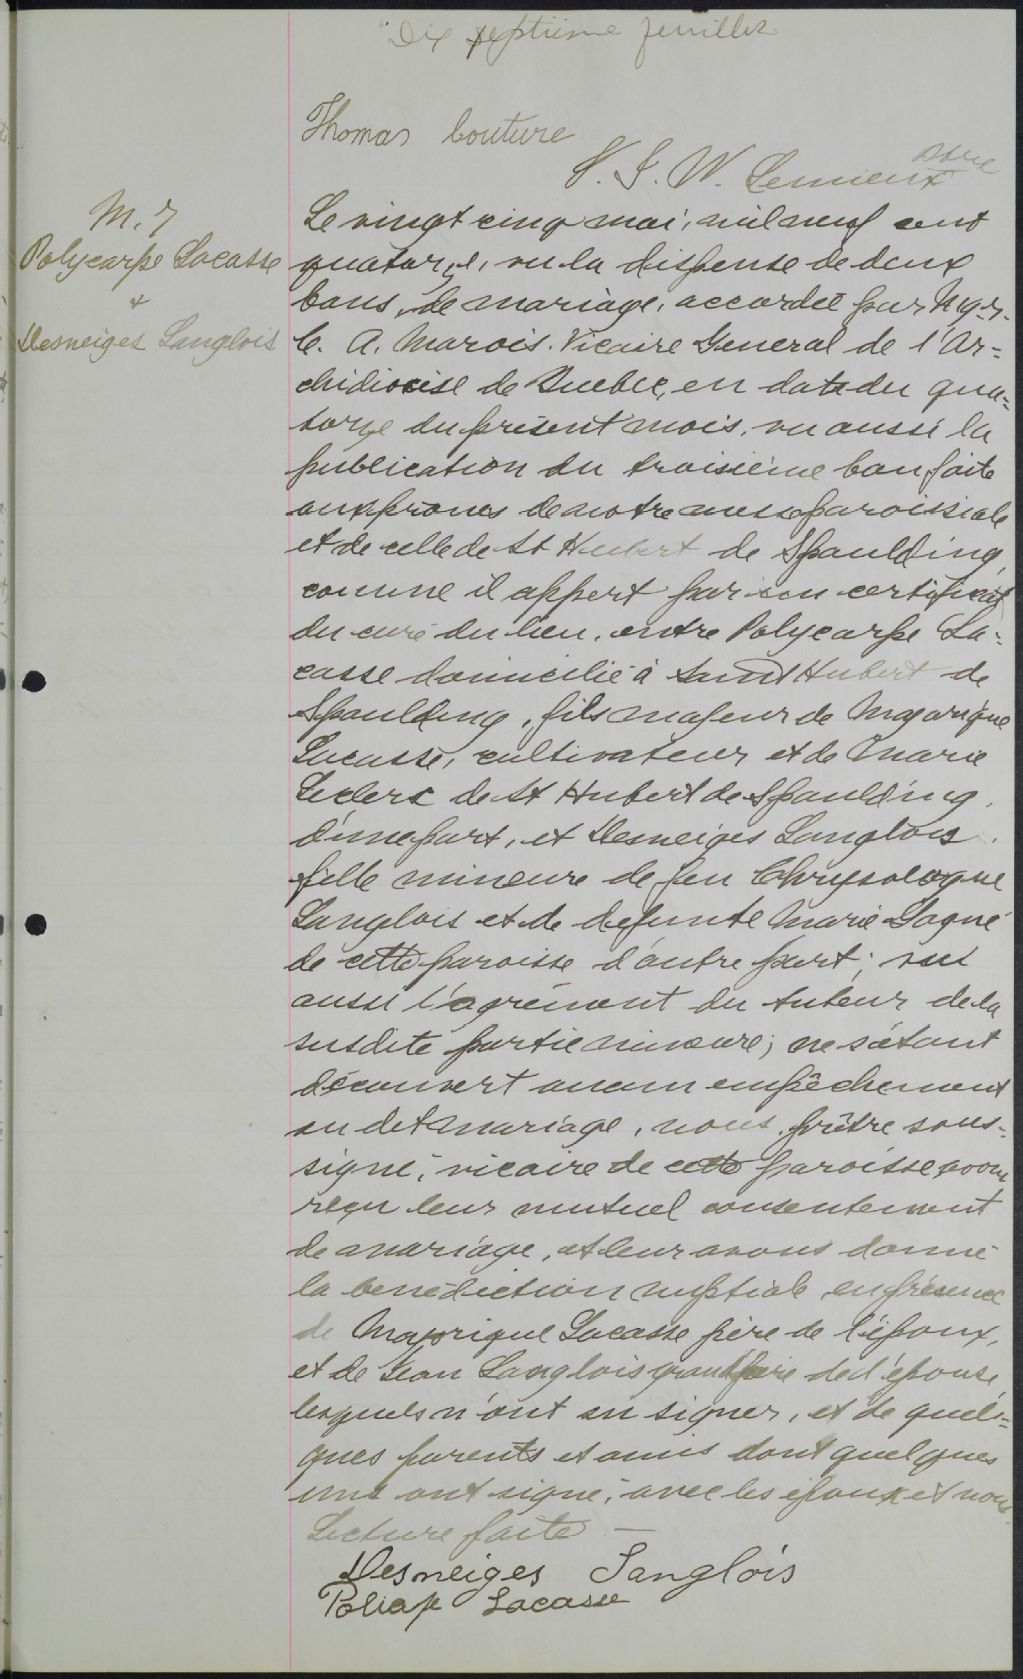 Dix septième feuillet
Thomas Couture
V. J. W. Lemieux ptre
M. 7
Polycarpe Lacasse
&
Desneiges Langlois
Le vingt cinq mai, mil neuf cent
quatorze, vu la dispense de deux
bans de mariage, accordée par Mgr.
C. A. Marois. Vicaire General de l'Ar=
chidiocèse de Quebec, en date du qua=
torze du présent mois, vu aussi la
publication du troisième ban faite
aux prônes de notre messe paroissiale
et de celle de St Hubert de Spaulding,
comme il appert par un certificat
du curé du lieu, entre Polycarpe La=
casse domicilié à Saint Hubert de
Spaulding, fils majeur de Majorique
Lacasse, cultivateur et de Marie
Leclerc de St Hubert de Spaulding,
d'une part, et Desneiges Langlois
fille mineure de feu Chrysologue
Langlois et de defunte Marie Gagné
de cette paroisse d'autre part; vu
aussi l'agrément du tuteur de la
susdite partie mineure; ne s'étant
découvert aucun empêchement
au dit mariage, nous, prêtre sous=
signé, vicaire de cette paroisse, avons
reçu leur mutuel consentement
de mariage, et leur avons donné
la bénédiction nuptiale en présence
de Majorique Lacasse père de l'époux,
et de Jean Langlois grand père de l'épouse,
lesquels n'ont su signer, et de quel=
ques parents et amis dont quelques
uns ont signé, avec les époux et nous.
Lecture faite —
Desneiges Langlois
Lacasse